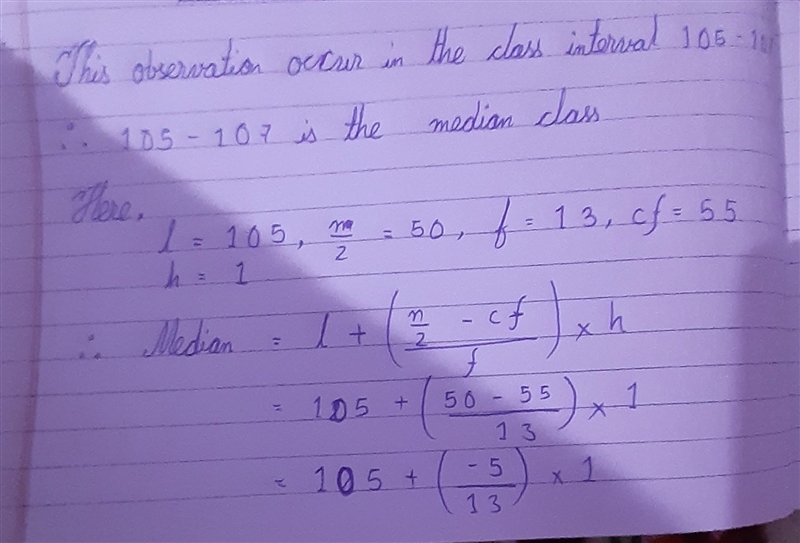 This observation occur in the class interval 105 - 107
∴ 105 - 107 is the median class
Here,
l = 105, n/2 = 50, f = 13, cf = 55
h = 1
∴ Median = l + ( (n/2 - cf) / f ) × h
= 105 + ( (50 - 55) / 13 ) × 1
= 105 + ( -5 / 13 ) × 1